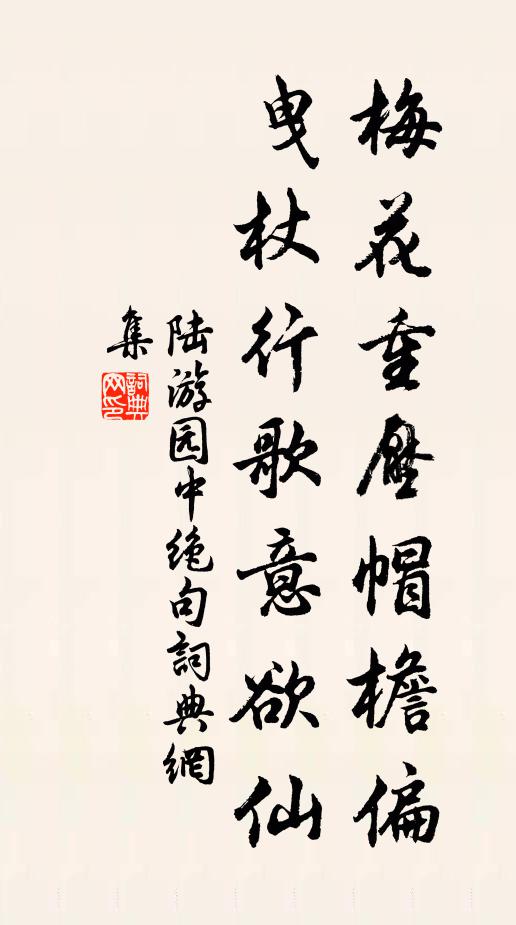 梅花重壓帽檐偏
曳杖行歌意欲仙
陆游园中绝句詞典網
集
詞典网印